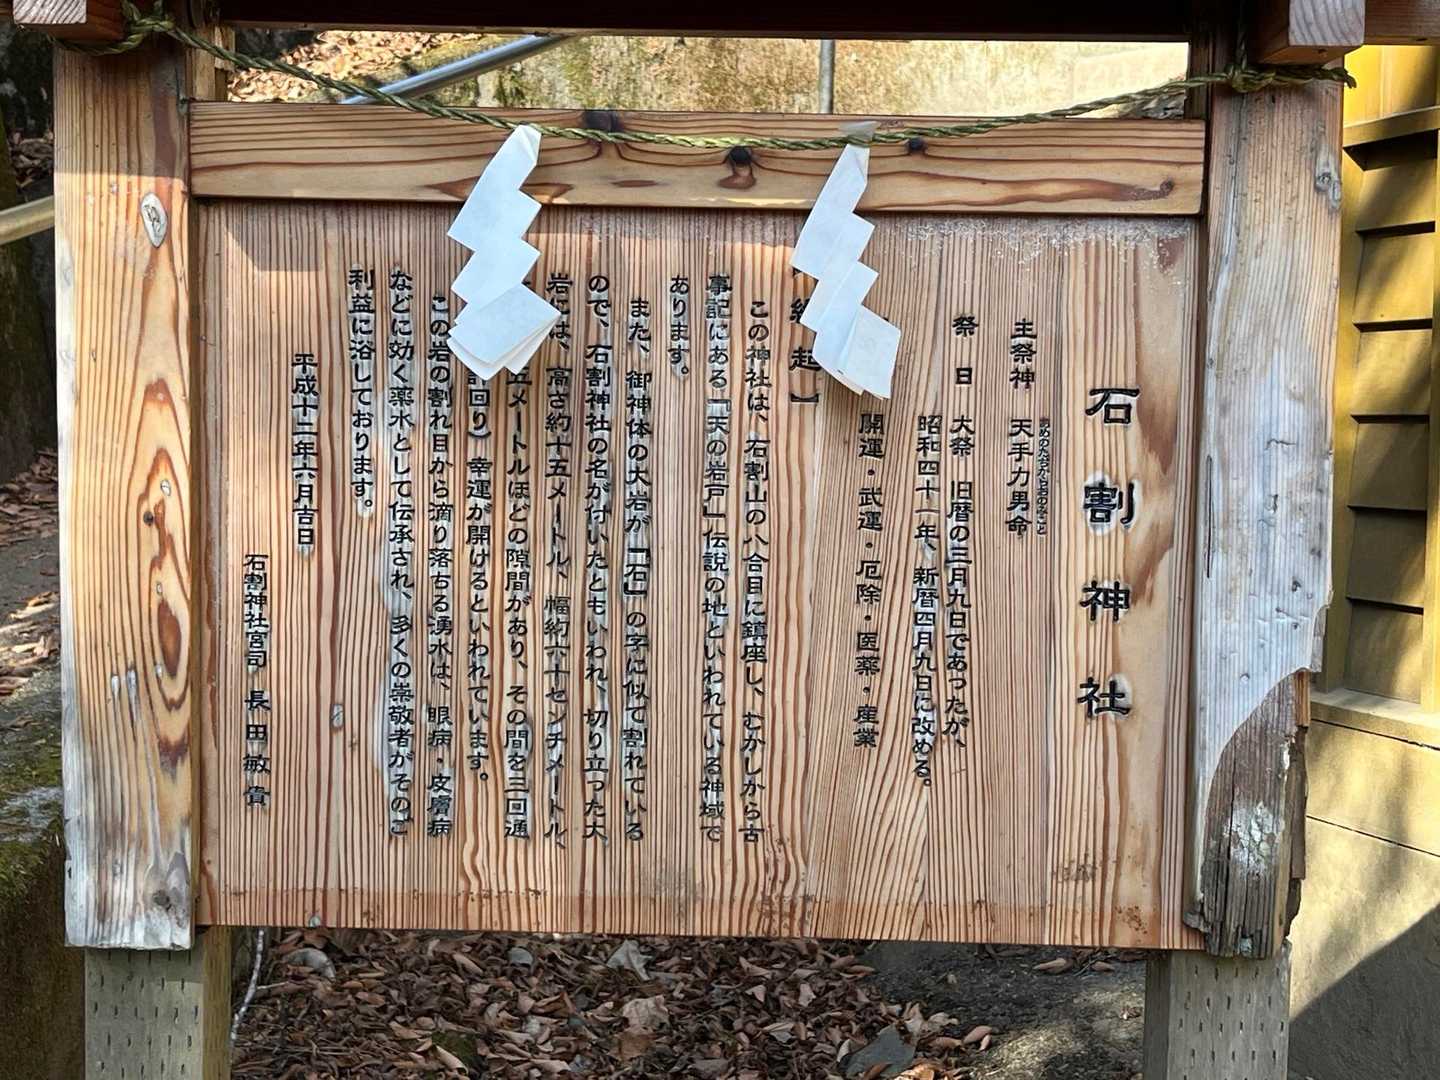 石割神社
主祭神 天手力男命
あめのたぢからおのみこと
祭日 大祭 旧暦の三月九日であったが、
昭和四十一年、新暦四月九日に改める。
開運・武運・厄除・医薬・産業
起】
この神社は、石割山の八合目に鎮座し、むかしから古
事記にある「天の岩戸」伝説の地といわれている神域で
あります。
また、御神体の大岩が「石」の字に似て割れている
ので、石割神社の名が付いたともいわれ、切り立った大
岩には、高さ約十五メートル、幅約六十センチメートル、
五メートルほどの隙間があり、その間を三回通
回り）幸運が開けるといわれています。
この岩の割れ目から滴り落ちる湧水は、眼病・皮膚病
などに効く薬水として伝承され、多くの崇敬者がそのご
利益に浴しております。
平成十二年六月吉日
石割神社宮司 長田敏貴